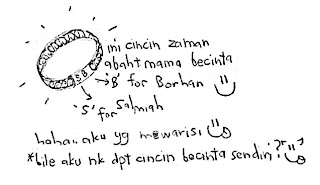 ini cincin zaman
abaht mama becinta
SB
'B' for Borhan
'S' for Salmiah
haha.. aku yg mewarisi
*bile aku nk dpt cincin becinta sendiri?*